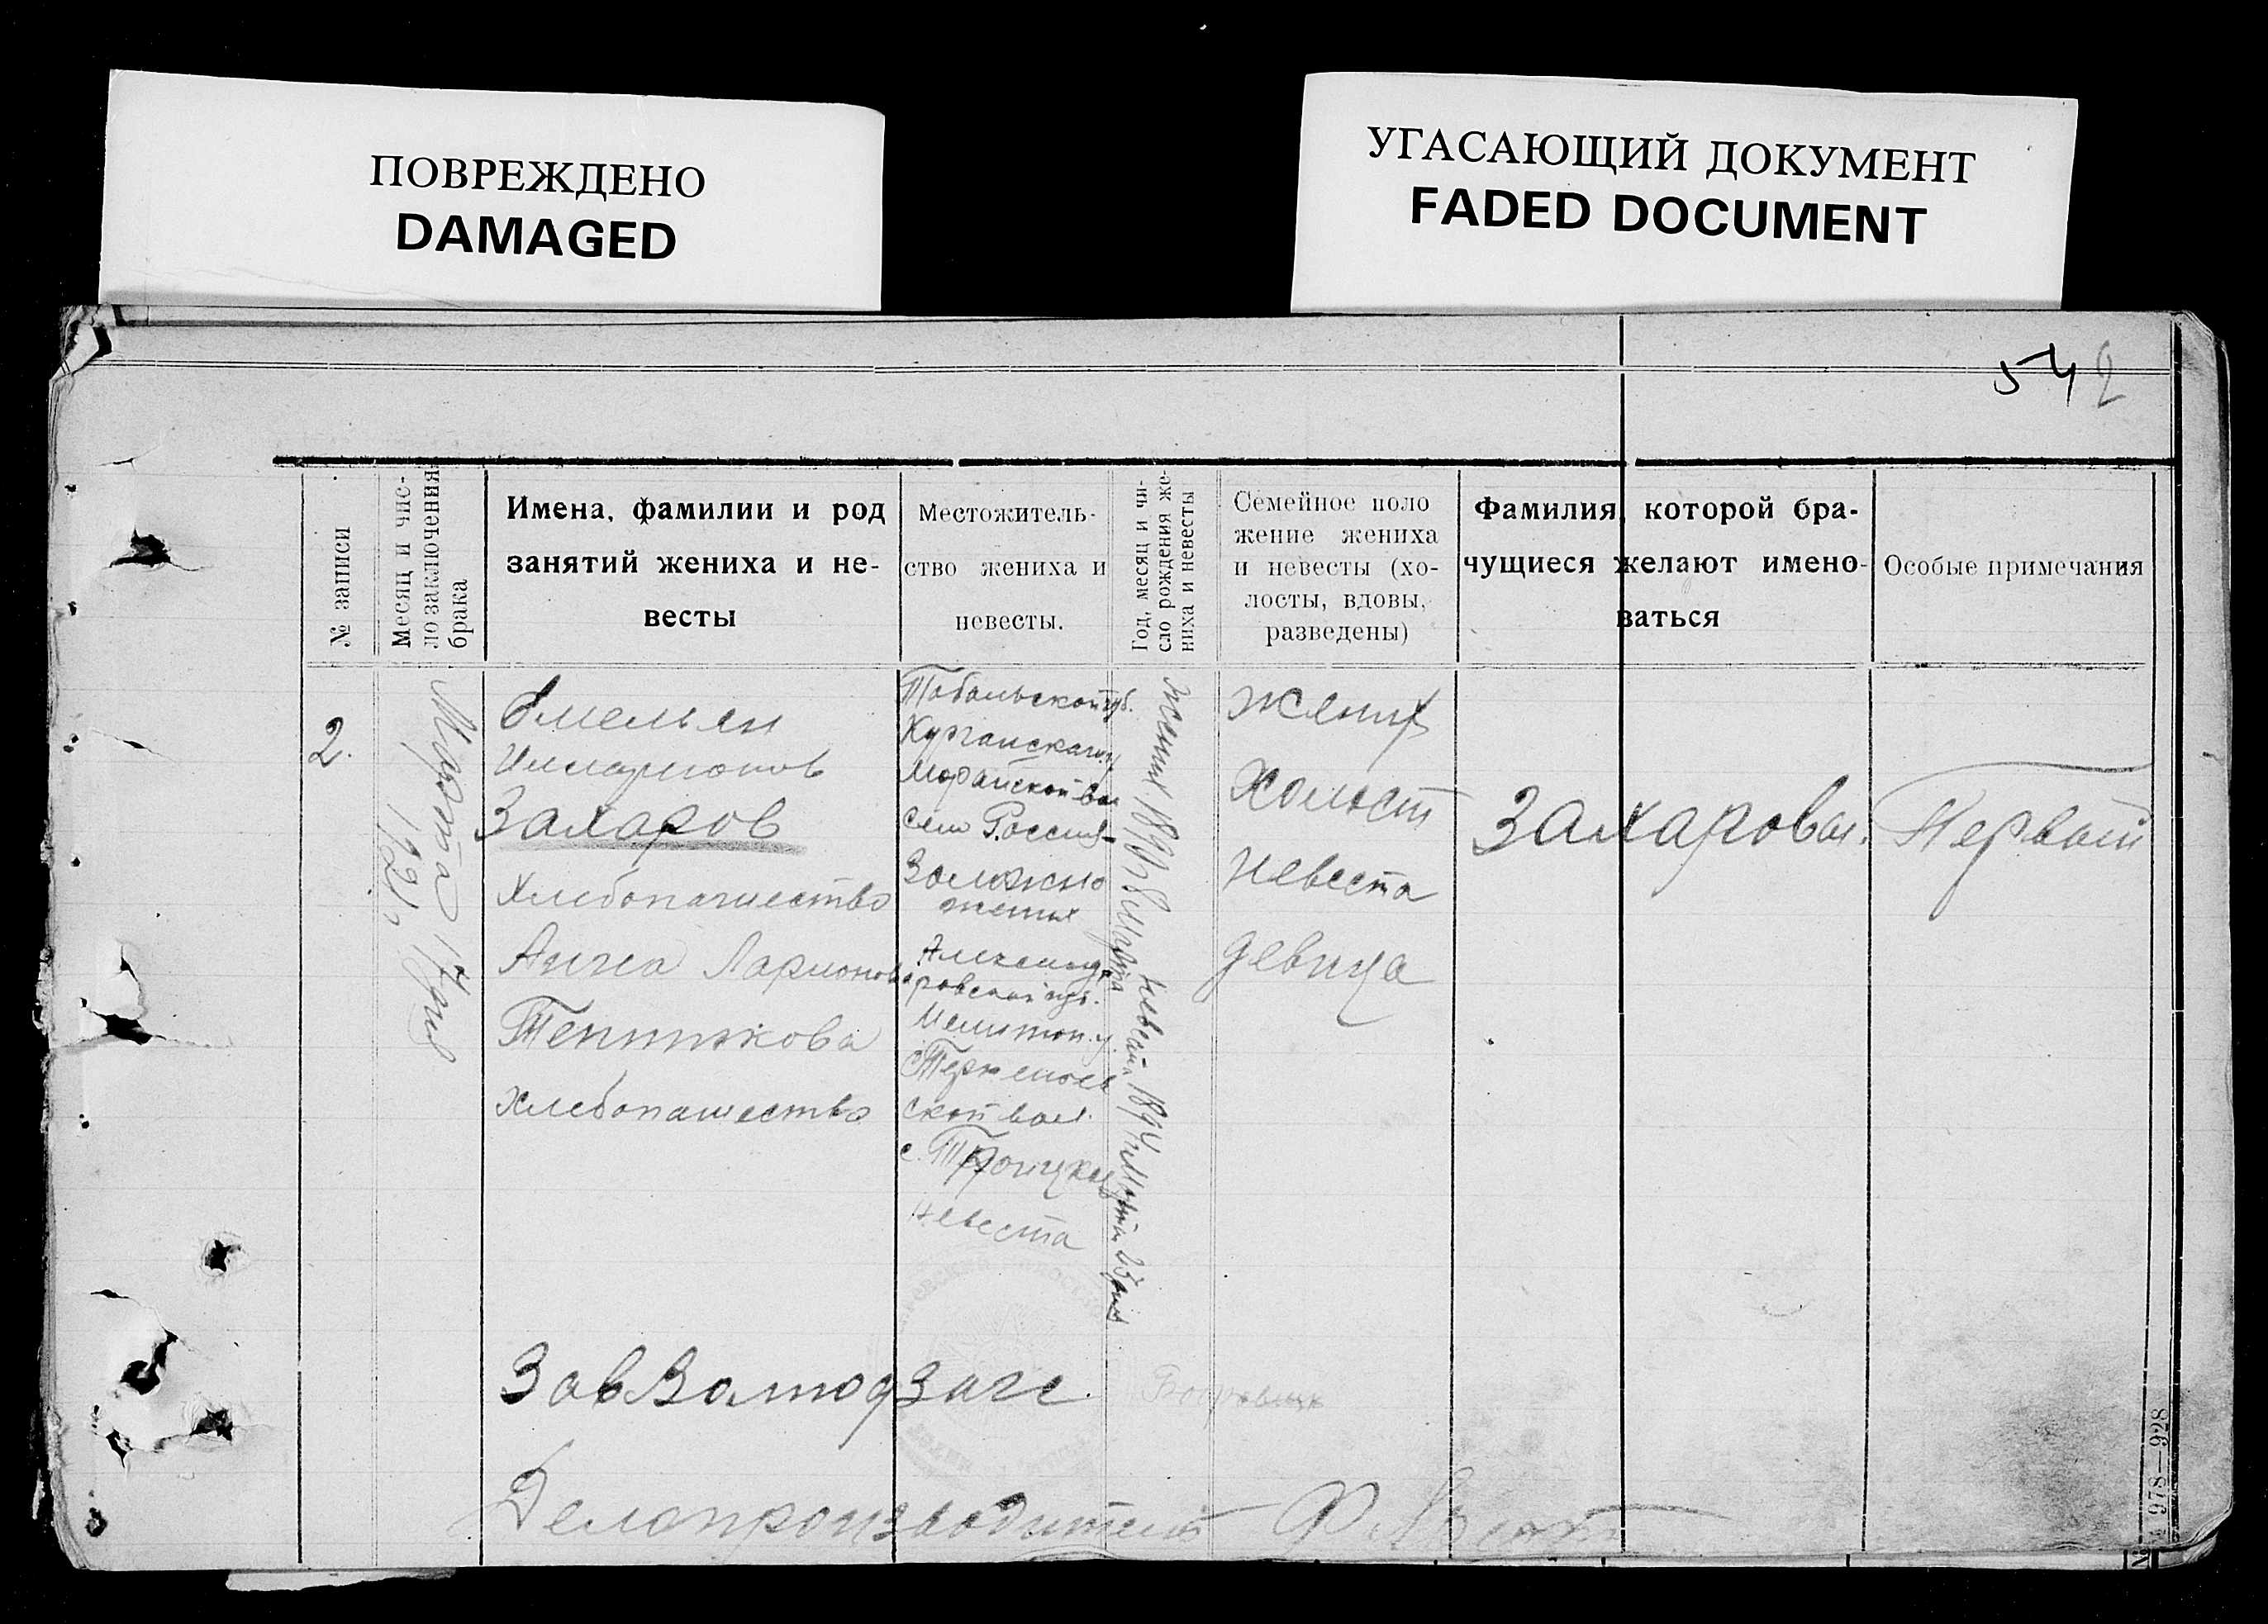 ПОВРЕЖДЕНО
DAMAGED
УГАСАЮЩИЙ ДОКУМЕНТ
FADED DOCUMENT
54 2
№ записи
Месяц и чис-
ло заключения
брака
Имена, фамилии и род
занятий жениха и не-
весты
Местожитель-
ство жениха и
невесты.
Год, месяц и чи-
сло рождения же-
ниха и невесты
Семейное поло
жение жениха
и невесты (хо-
лосты, вдовы,
разведены)
Фамилия, которой бра-
чущиеся желают имено-
ваться
Особые примечания
2.
Марта 17 дня
1921
Емельян
Илларионов
Захаров
Хлебопашество
Анна Ларионова
Тептюкова
Хлебопашество
Тобольской губ.
Курганскаго у
Морайской вол
село
жених
Александ
ровской губ.
Мелитоп. у.
ской вол.
с. Троицкое
Невеста
жених 189
невеста 1894 Марта
жених
Холост
Невеста
девица
Захаровы.
Первый
ЗавВолподЗагс.
Делопроизводитель
№ 978—928